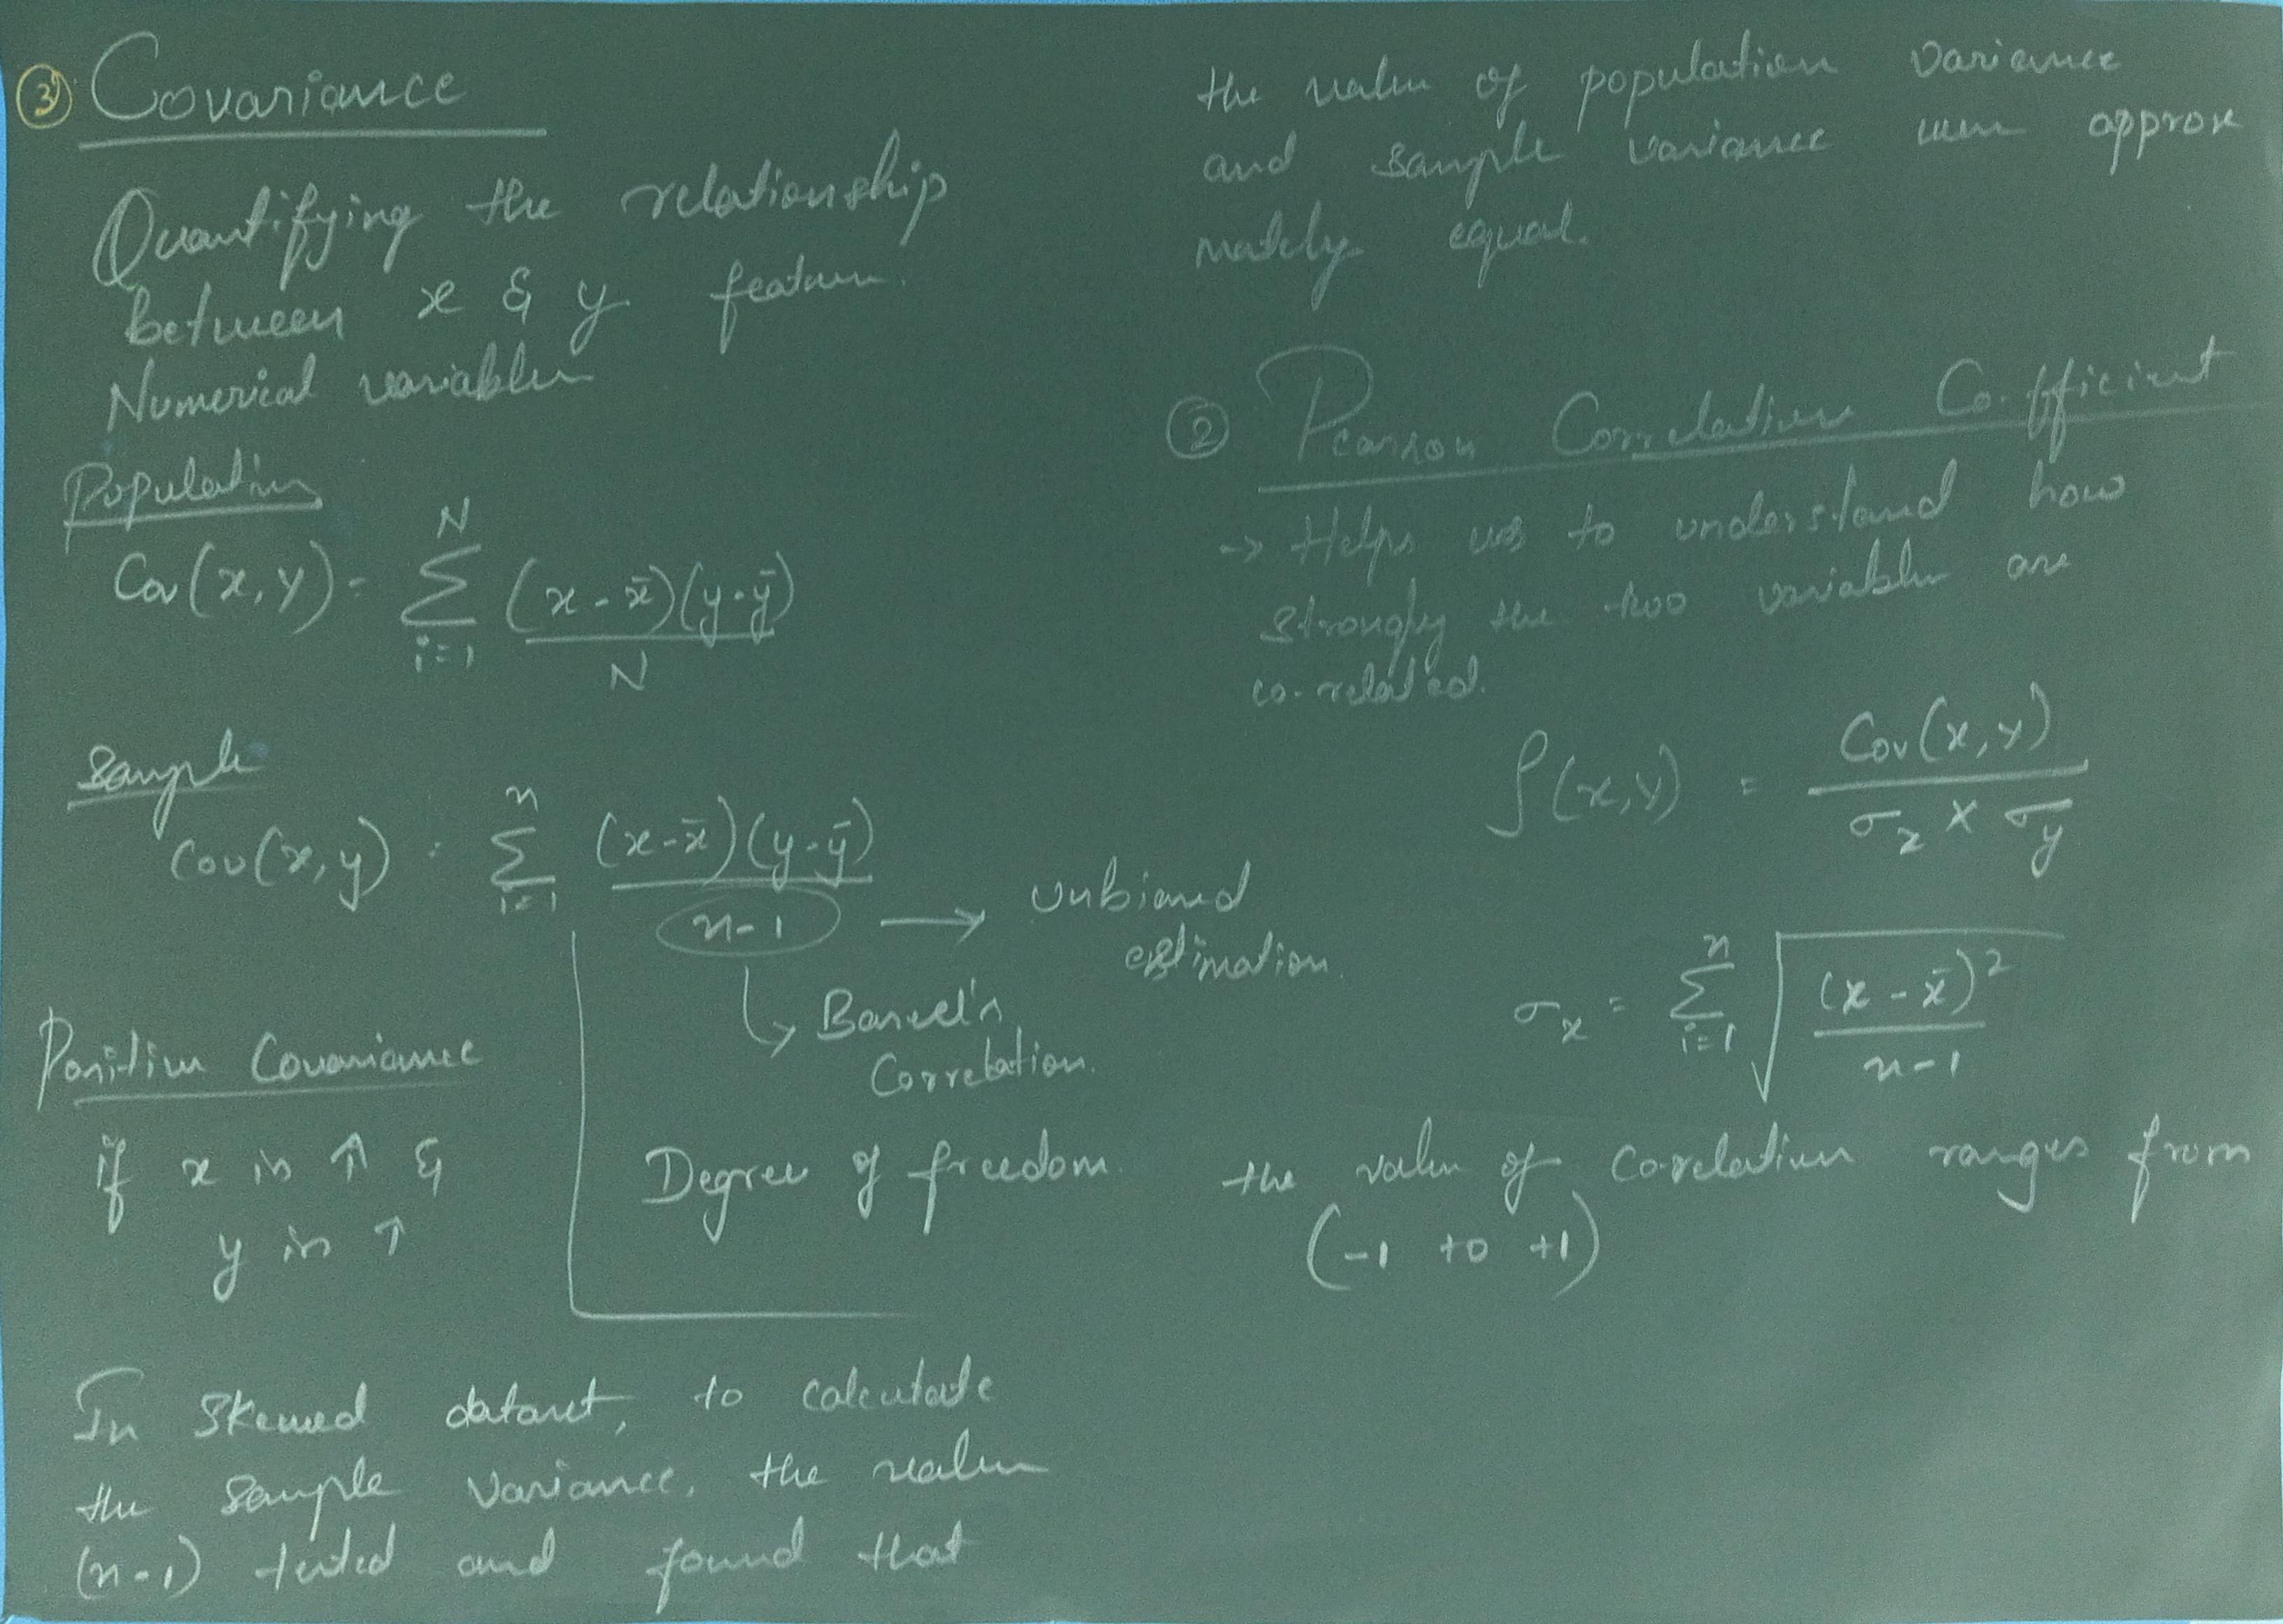 ③ Covariance
Quantifying the relationship
between x & y feature.
Numerical variables
Population
Cov(x, y) = N Σ i=1 (x - x̄)(y - ȳ) / N
Sample
Cov(x, y) = n Σ i=1 (x - x̄)(y - ȳ) / n-1 → unbiased
estimation.
↳ Bassel's
Correlation.
Degree of freedom.
Positive Covariance
if x is ↑ &
y is ↑
In skewed dataset, to calculate
the sample variance, the value
(n-1) tested and found that
the value of population variance
and sample variance were approxi
mately equal.
② Pearson Correlation Co-fficient
→ Helps us to understand how
strongly the two variables are
co-related.
ρ(x, y) = Cov(x, y) / σx × σy
σx = n Σ i=1 √((x - x̄)² / n-1)
the value of Co-relation ranges from
(-1 to +1)